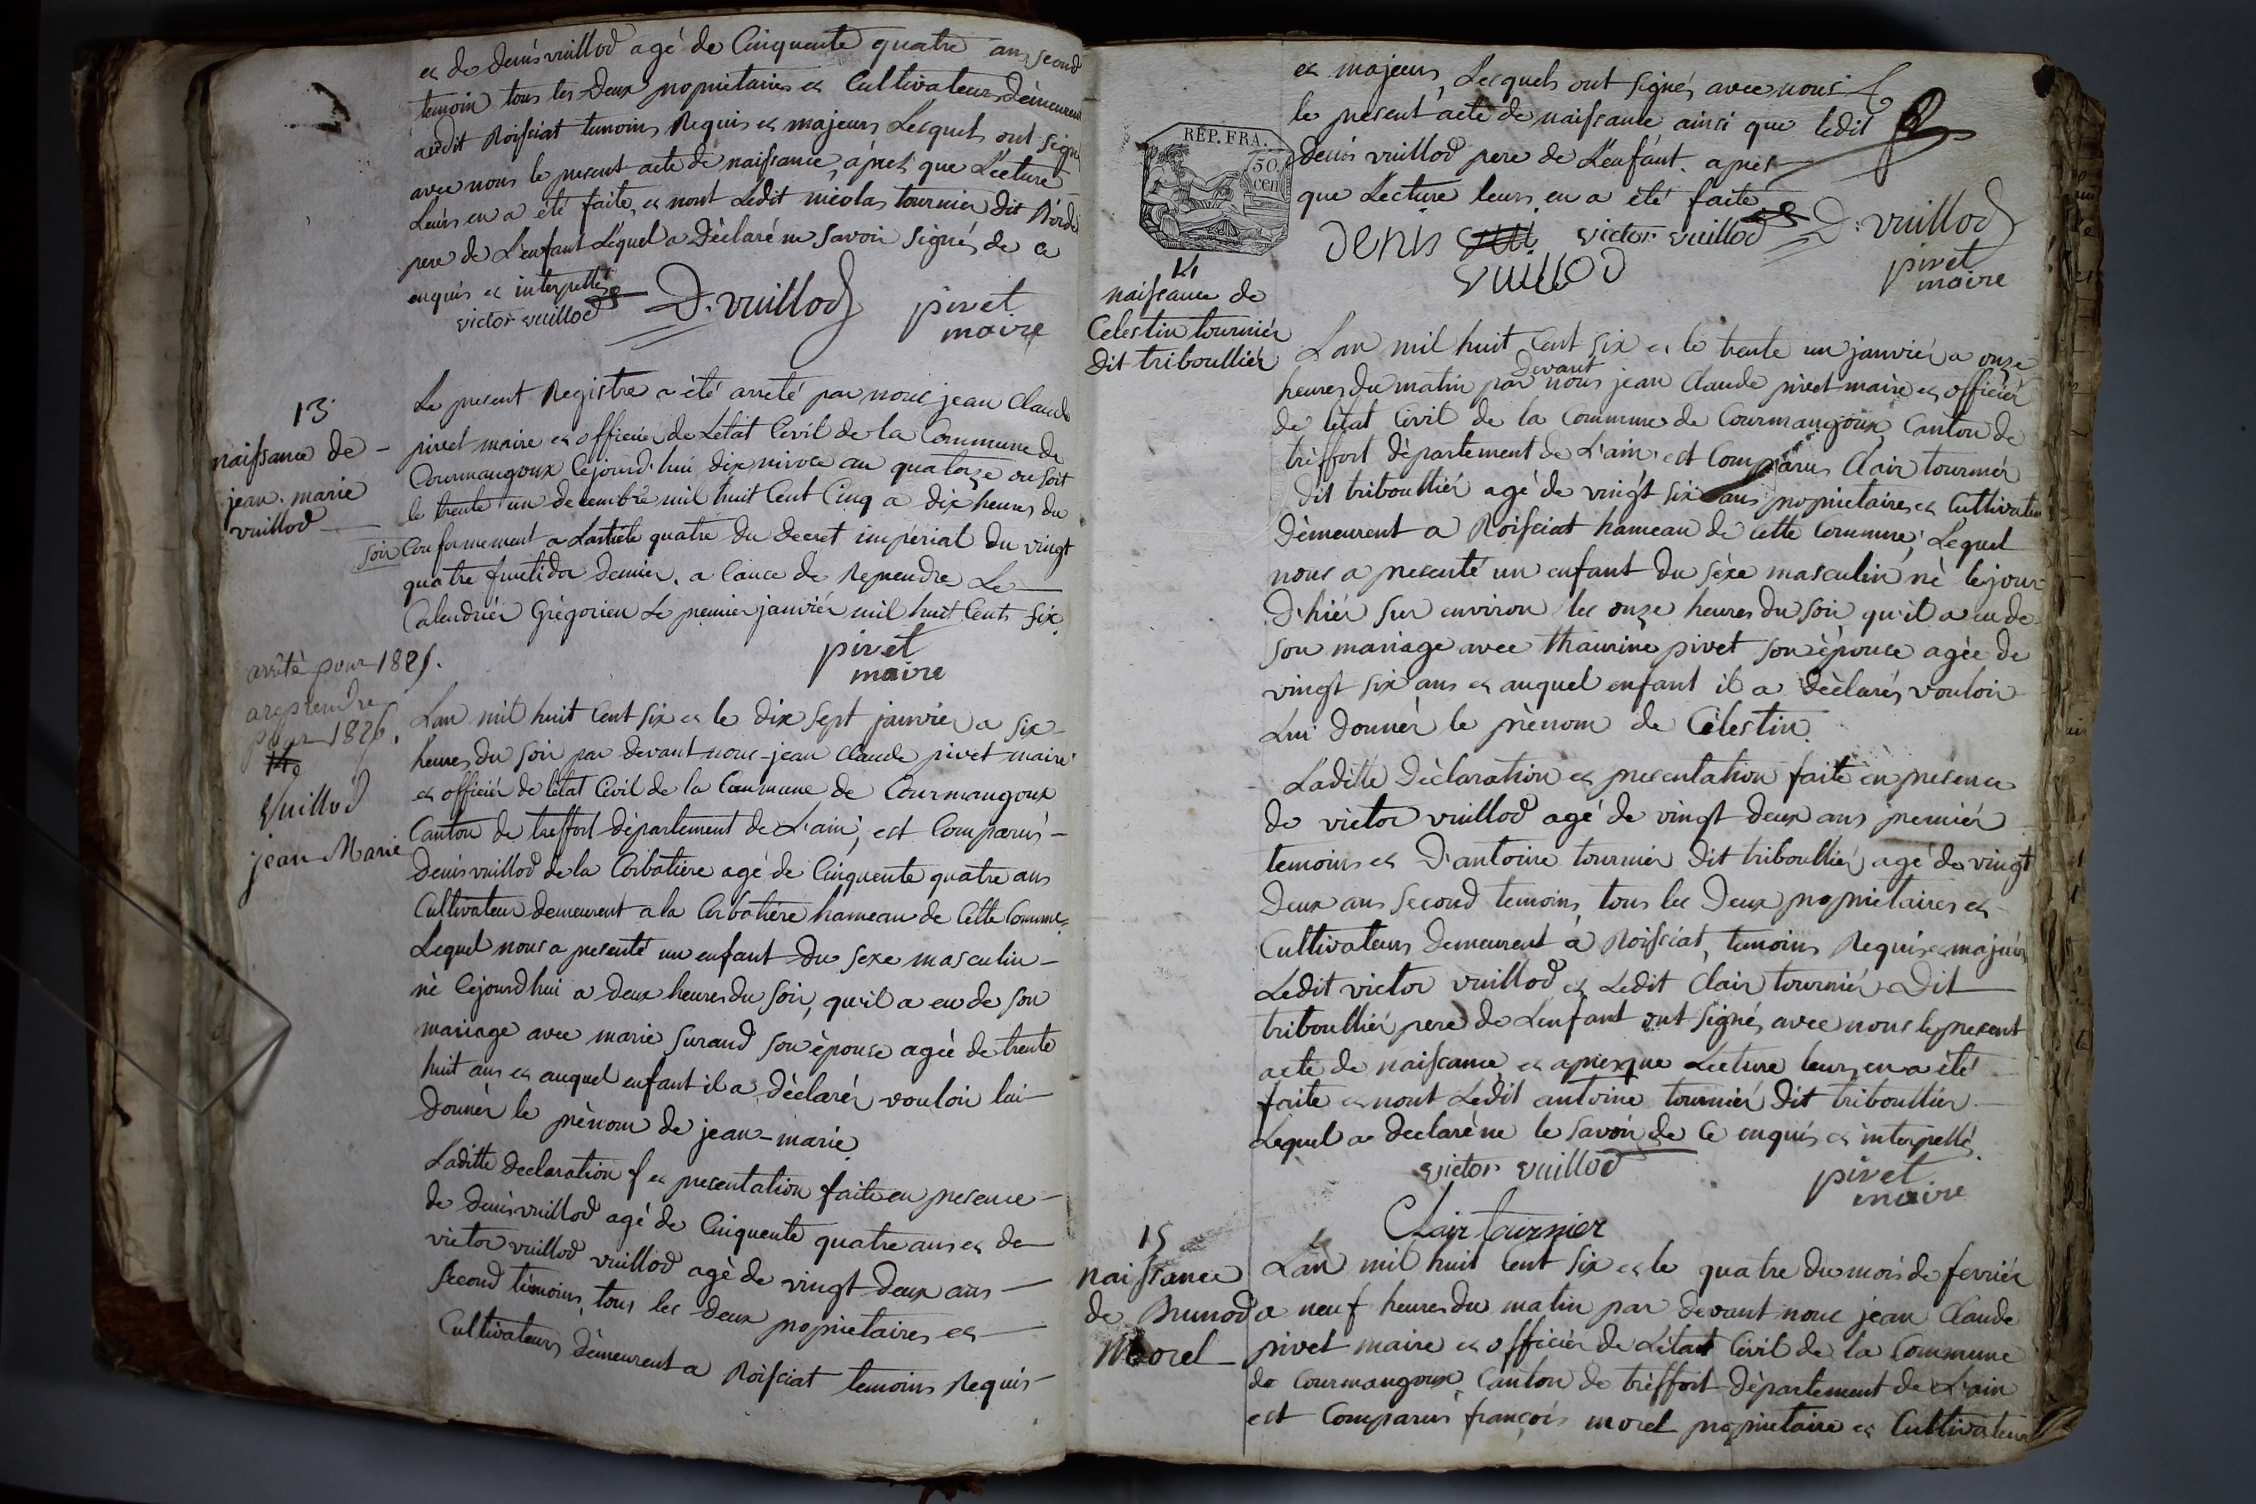 et de denis vuillod agé de Cinquente quatre ans second
temoin tous les deux propriétaires et Cultivateurs dèmeurent
audit Roissiat temoins Requis et majeurs Lesquels ont signé
avec nous le present acte de naissance, àprès que Lecture
Leurs en a été faite, et nont Ledit nicolas tournier dit
pere de L'enfant Lequel a Dèclaré ne savoir signés de ce
enquis et interpellé
victor vuillod D. vuillod pivet
maire
13
naissance de
jean. marie
vuillod
Le present Registre a été arreté par nous jean Claude
pivet maire et officier de L'état Civil de la Commune de
Courmangoux Cejourd'hui dix nivose an quatorze ou soit
le trente un decembre mil huit Cent Cinq a dix heures du
soir Conformement a Larticle quatre du decret impérial du vingt
quatre fructidor dernier. a Cause de Reprendre Le
Calendrièr Grègorien Le premier janvièr mil huit Cents six
pivet
maire
arrêté pour 1825.
areprendre
pour 1826.
14
Vuillod
jean Marie
Lan mil huit Cent six et le dix sept janvier a six
heures du soir par devant nous jean Claude pivet maire
et officièr de létat Civil de la Commune de Courmangoux
Canton de treffort département de L'ain, est Comparus
Denis vuillod de la Corbatiere agé de Cinquente quatre ans
Cultivateur demeurent a la Corbatière hameau de Cette Commne
Lequel nous a presenté un enfant du sexe masculin
nè Cejourdhui a deux heures du soir, qu'il a eu de son
mariage avec marie surand son èpouse agèè de trente
huit ans et auquel enfant il a dèclarér vouloir lui
donnèr le prènom de jean-marie
Laditte declaration et presentation faite en presence
de denis vuillod agé de Cinquente quatre ans et de
victor vuillod vuillod agè de vingt deux ans
second tèmoins, tous les deux propriétaires et
Cultivateurs dèmeurent a Roissiat temoins Requis
et majeurs, Lesquels ont signés avec nous
le present acte de naissance ainsi que ledit
Denis vuillod pere de L'enfant. apres
que Lecture leurs en a été faite
RÉP. FRA.
50
cen
Denis victor vuillod D. vuillod
vuillod
pivet
maire
14
naissance de
Celestin tournièr
dit triboullièr
Lan mil huit Cent six et le trente un janvièr a onze
heures du matin par devant nous jean Claude pivet maire et officièr
de létat Civil de la Commune de Courmangoux Canton de
trèffort dèpartement de L'ain est Comparus Clair tournièr
dit triboullièr agé de vingt six ans propriétaires et Cultivateur
dèmeurent a Roissiat hameau de cette Commune, Lequel
nous a presenté un enfant du sèxe masculin nè le jour
D'hièr sur environ les onze heures du soir qu'il a eu de
son mariage avec thaurine pivet son èpouse agèe de
vingt six ans et auquel enfant il a dèclarés vouloir
Lui donnèr le prènom de Cèlestin
Laditte dèclaration et presentation faite en presence
de victor vuillod agé de vingt deux ans premièr
temoins et D'antoine tournièr dit triboullièr agé de vingt
Deux ans second temoins, tous les deux propriétaires et
Cultivateurs demeurent à Roissiat, temoins Requis et majeurs
Ledit victor vuillod et Ledit Clair tournièr Dit
triboullièr pere de L'enfant ont signés avec nous le present
acte de naissance, et apres que Lecture leurs en a èté
faite et nont Ledit antoine tournièr dit triboullièr
Lequel a declaré ne le savoir de Ce enquis et interpellé
victor vuillod pivet
maire
Clair tournier
15
naissance
de Brunod
Morel
Lan mil huit Cent six et le quatre du mois de fevrièr
a neuf heures du matin par devant nous jean Claude
pivet maire et officièr de L'état Civil de la Commune
de Courmangoux, Canton de trèffort département de L'ain
est Comparus françois morel propriétaire et Cultivateur